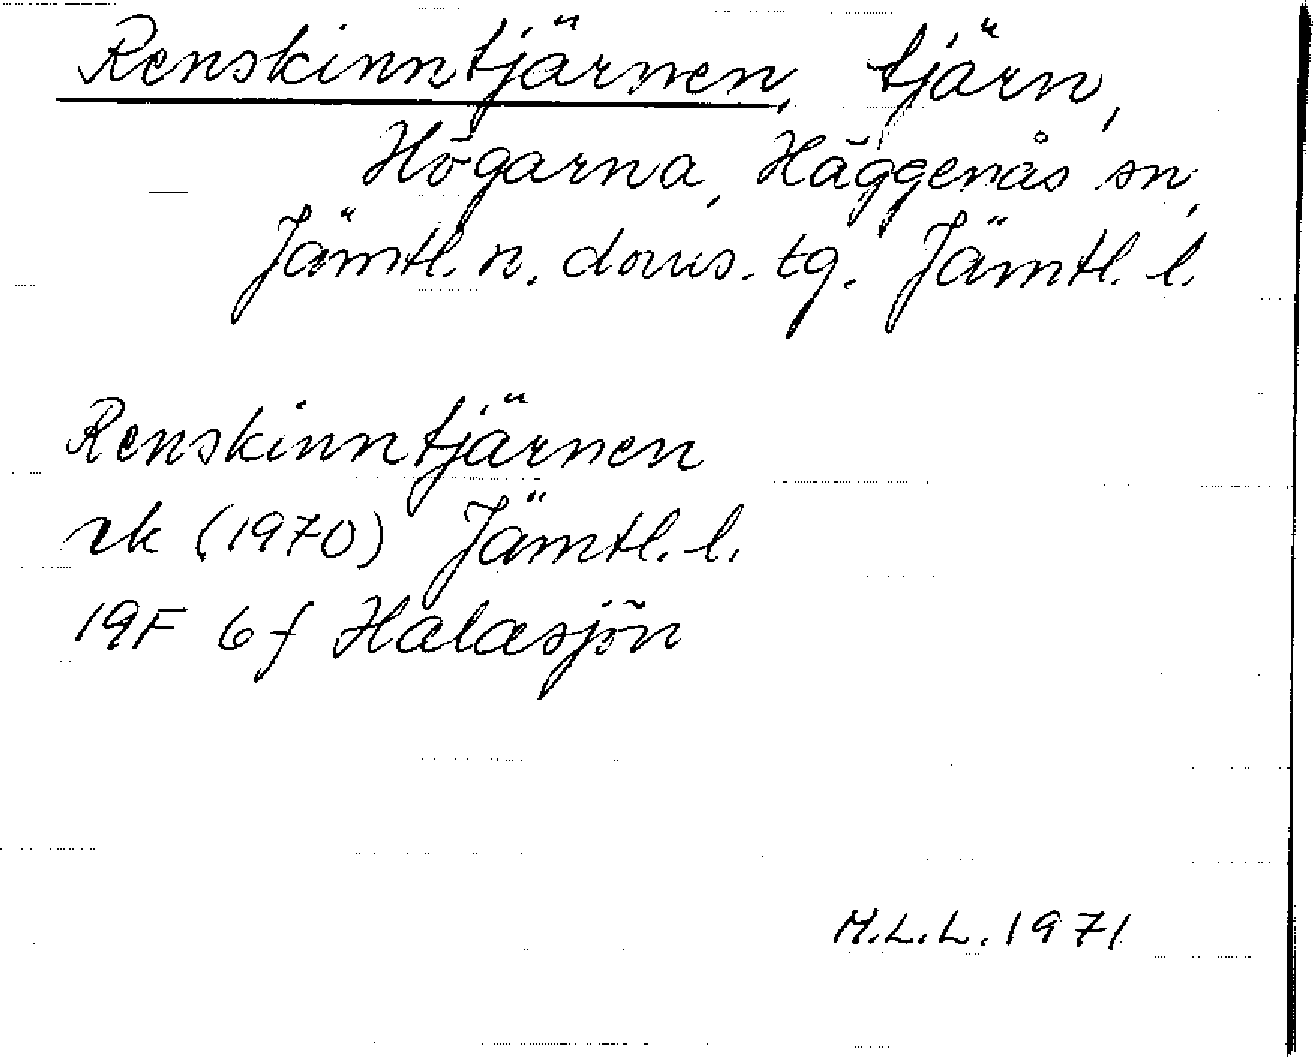 Renskinntjärnen, tjärn,
Högarna, Häggenås sn,
Jämtl. n. doms. tg. Jämtl. l.
Renskinntjärnen
rk (1970) Jämtl. l.
19F 6f Halasjön
M.L.L. 1971